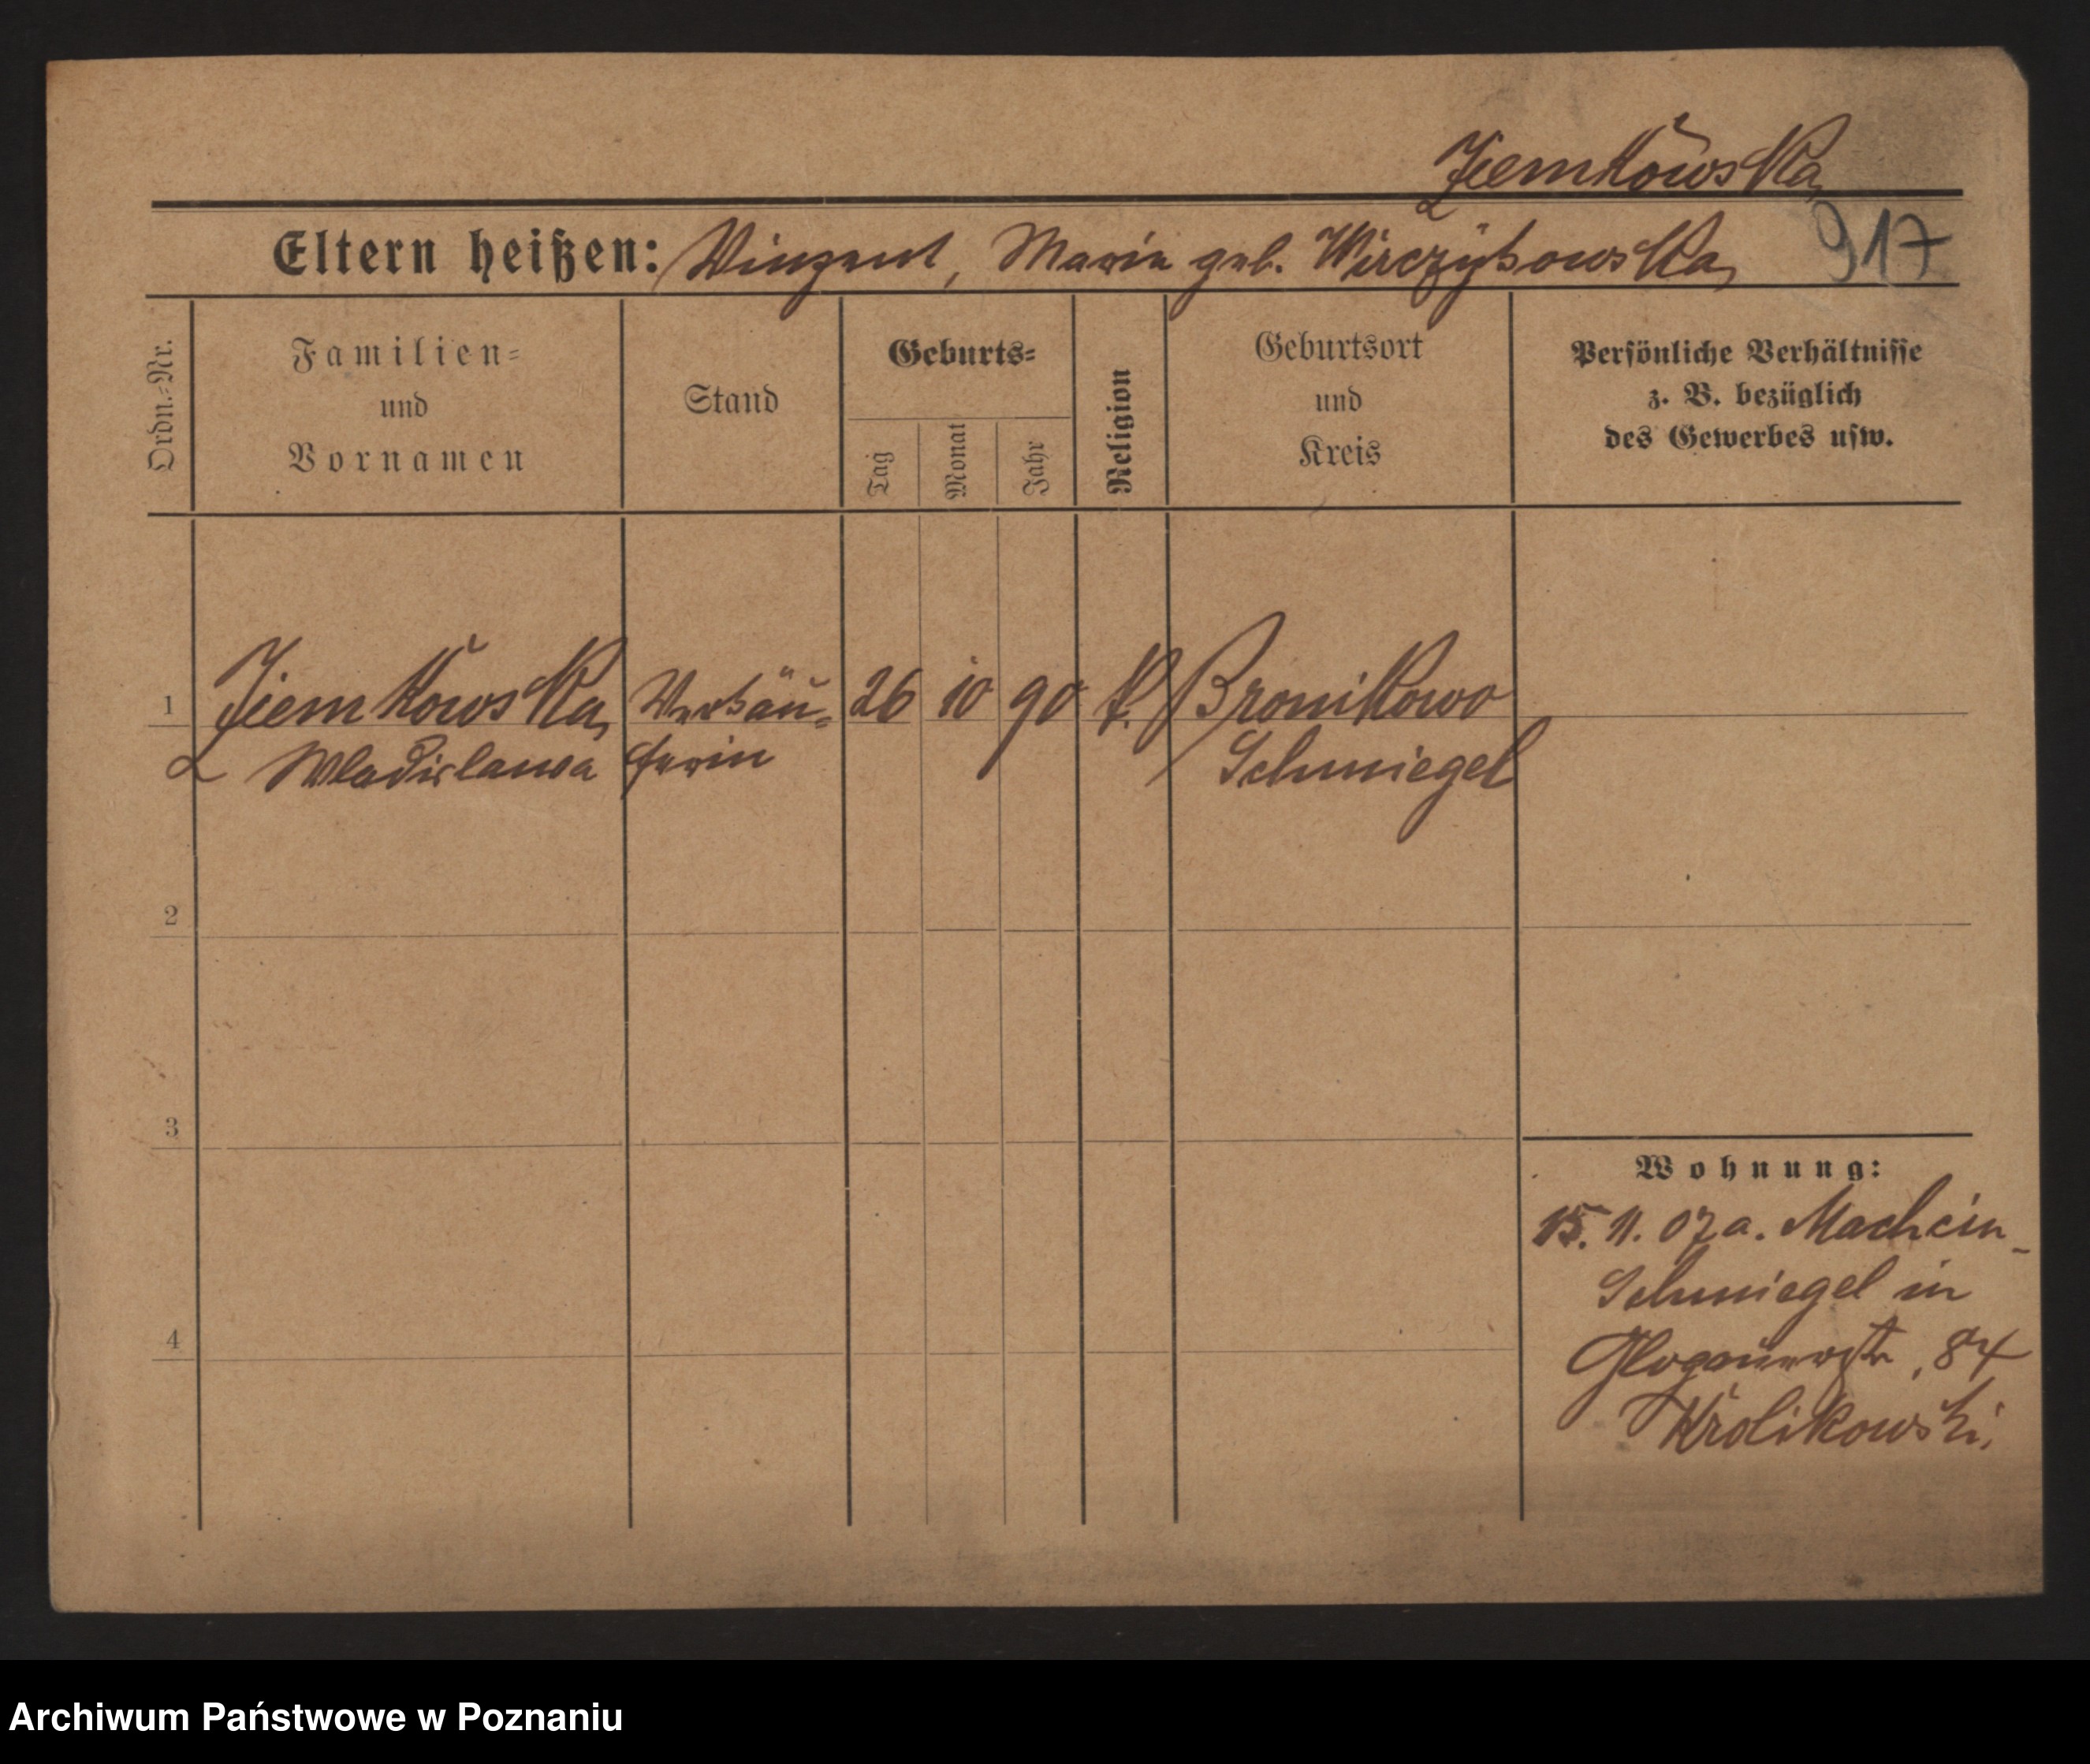 Ziemkowska
Eltern heißen: Vinzent, Marie geb. Wirczykowska
917
Ordn.=Nr.
Familien=
und
Vornamen
Stand
Geburts=
Tag
Monat
Jahr
Religion
Geburtsort
und
Kreis
Persönliche Verhältnisse
z. B. bezüglich
des Gewerbes usw.
1 Ziemkowska Verkäu= 26 10 90 k. Bronikowo
Wladislawa ferin Schmiegel
2
3
4
Wohnung:
15. 11. 07 a. Machcin-
Schmiegel in
Glogauerstr, 84
Krolikowski.
Archiwum Państwowe w Poznaniu